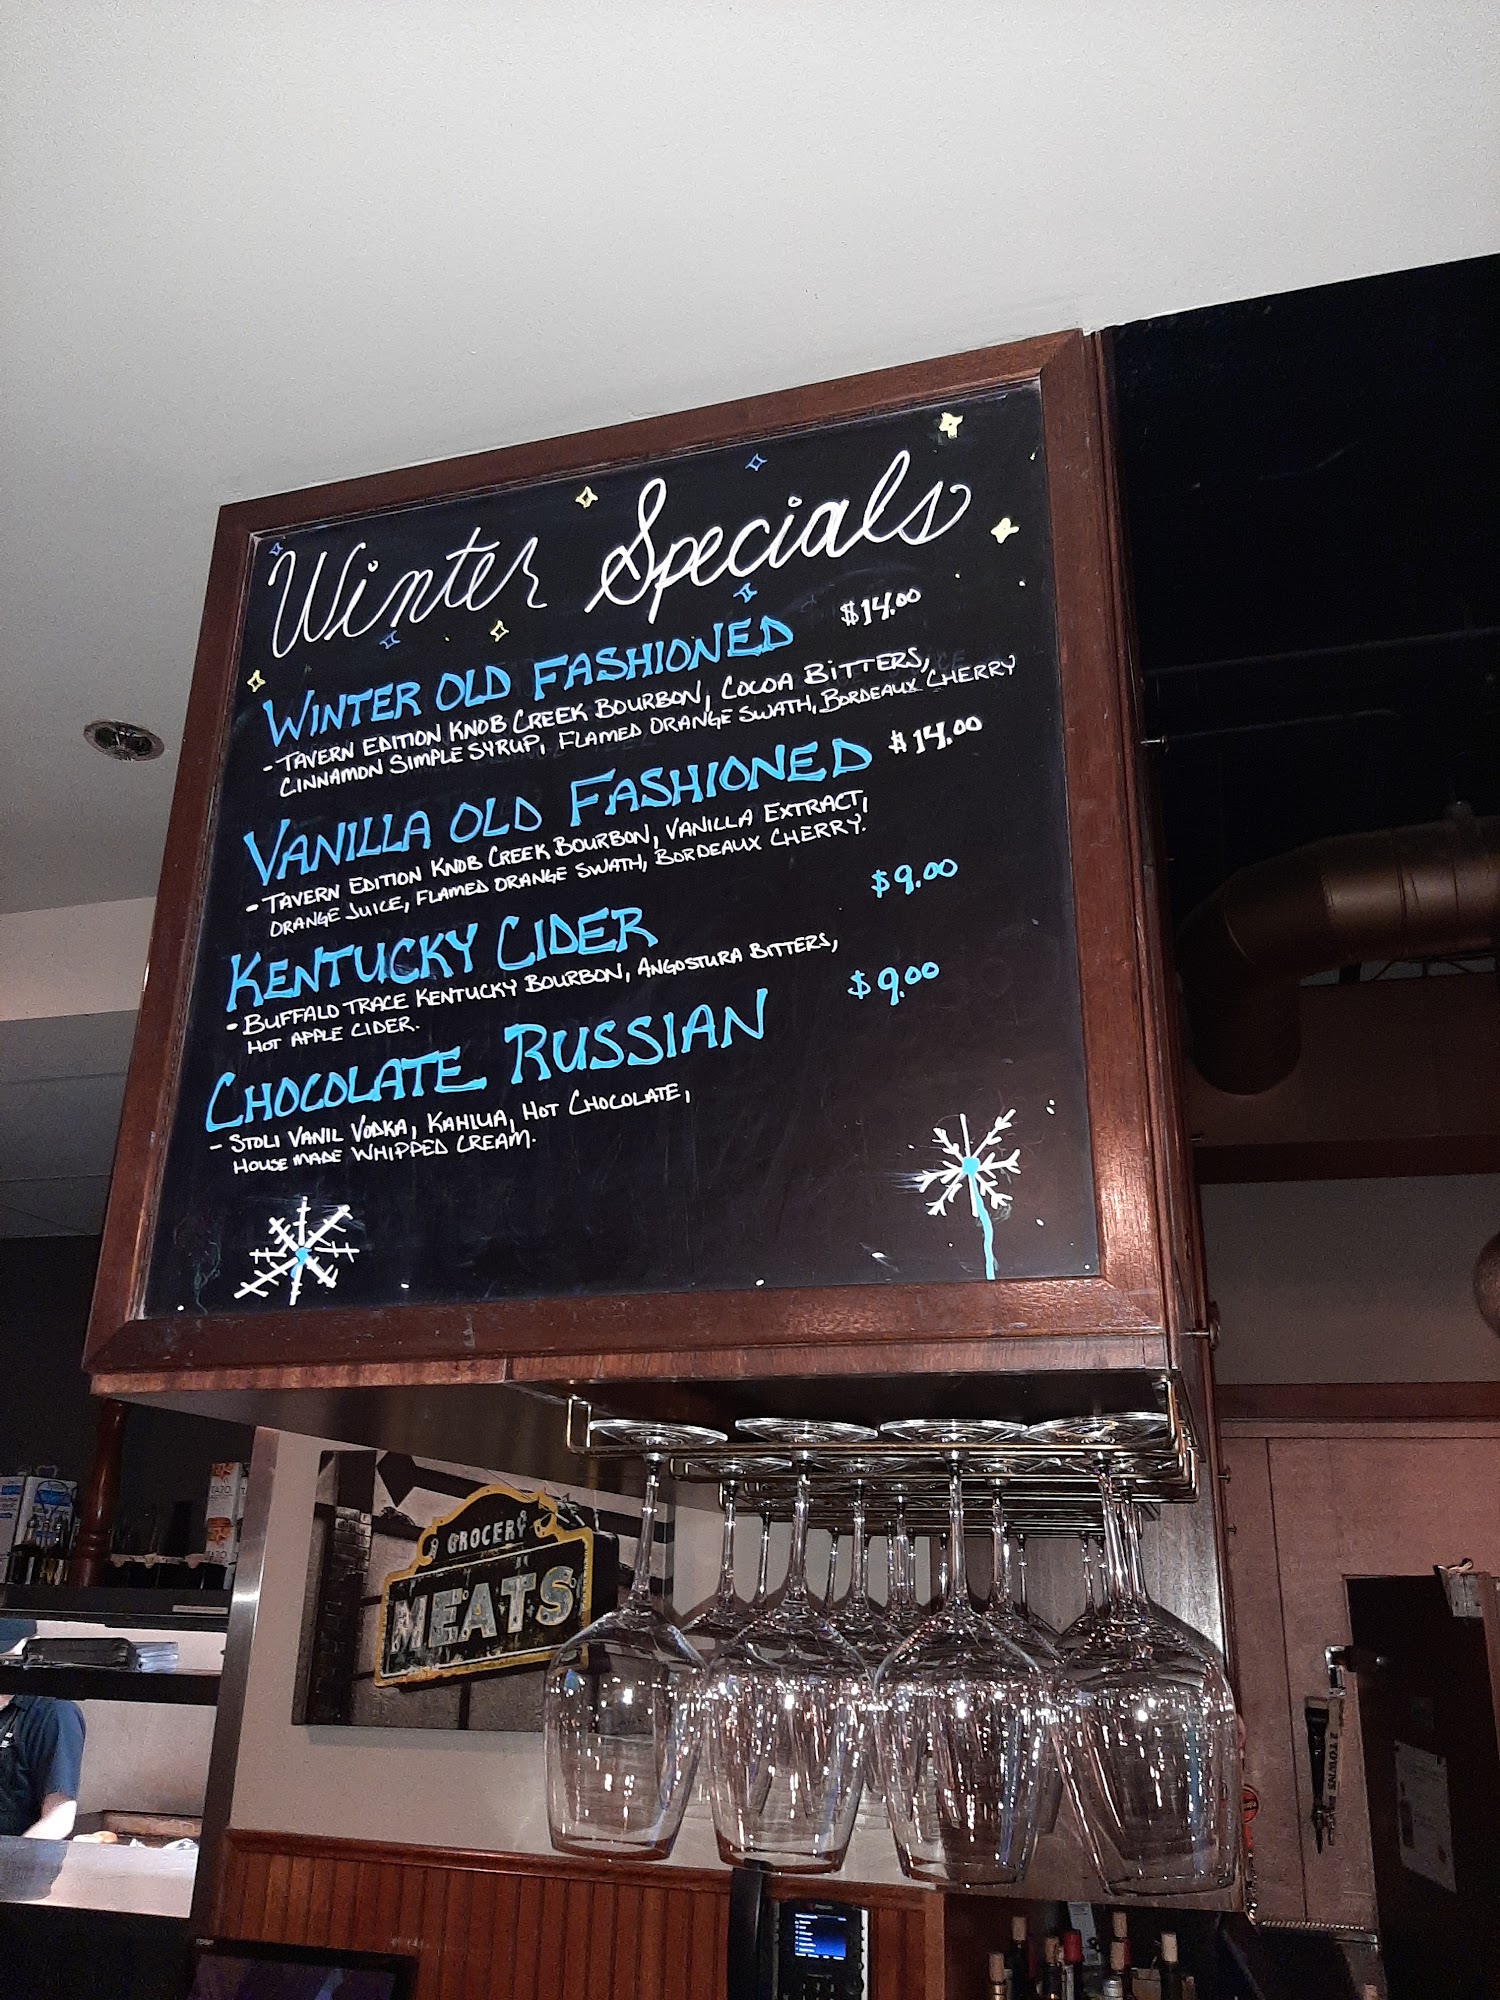 Winter Specials
WINTER OLD FASHIONED $14.00
- TAVERN EDITION KNOB CREEK BOURBON, COCOA BITTERS,
CINNAMON SIMPLE SYRUP, FLAMED ORANGE SWATH, BORDEAUX CHERRY
VANILLA OLD FASHIONED $14.00
- TAVERN EDITION KNOB CREEK BOURBON, VANILLA EXTRACT,
ORANGE JUICE, FLAMED ORANGE SWATH, BORDEAUX CHERRY.
KENTUCKY CIDER $9.00
- BUFFALO TRACE KENTUCKY BOURBON, ANGOSTURA BITTERS,
HOT APPLE CIDER.
CHOCOLATE RUSSIAN $9.00
- STOLI VANIL VODKA, KAHLUA, HOT CHOCOLATE,
HOUSE MADE WHIPPED CREAM.
GROCERY
MEATS
2 TOWNS